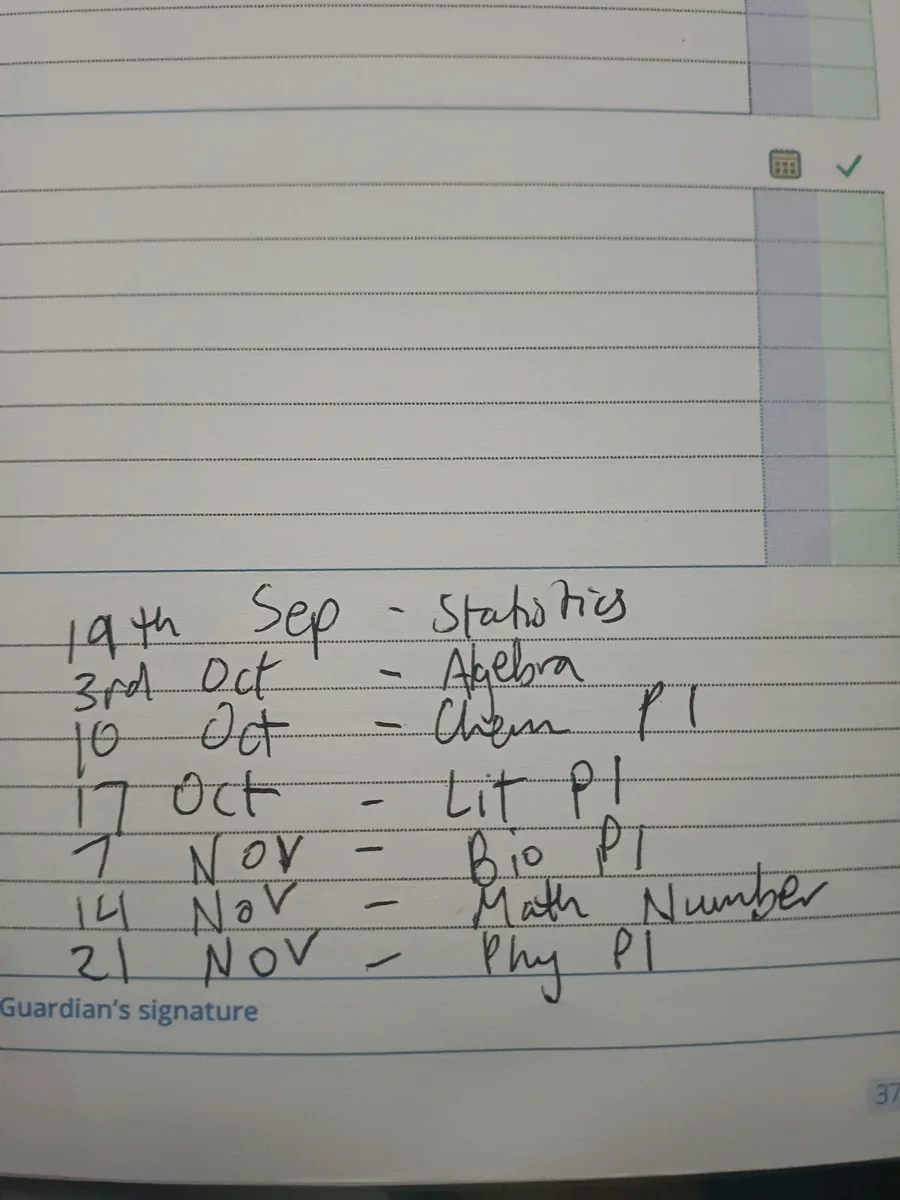 19th Sep - Statistics
3rd Oct - Algebra
10 Oct - Chem P1
17 Oct - Lit P1
7 Nov - Bio P1
14 Nov - Math Number
21 Nov - Phy P1
Guardian's signature
37